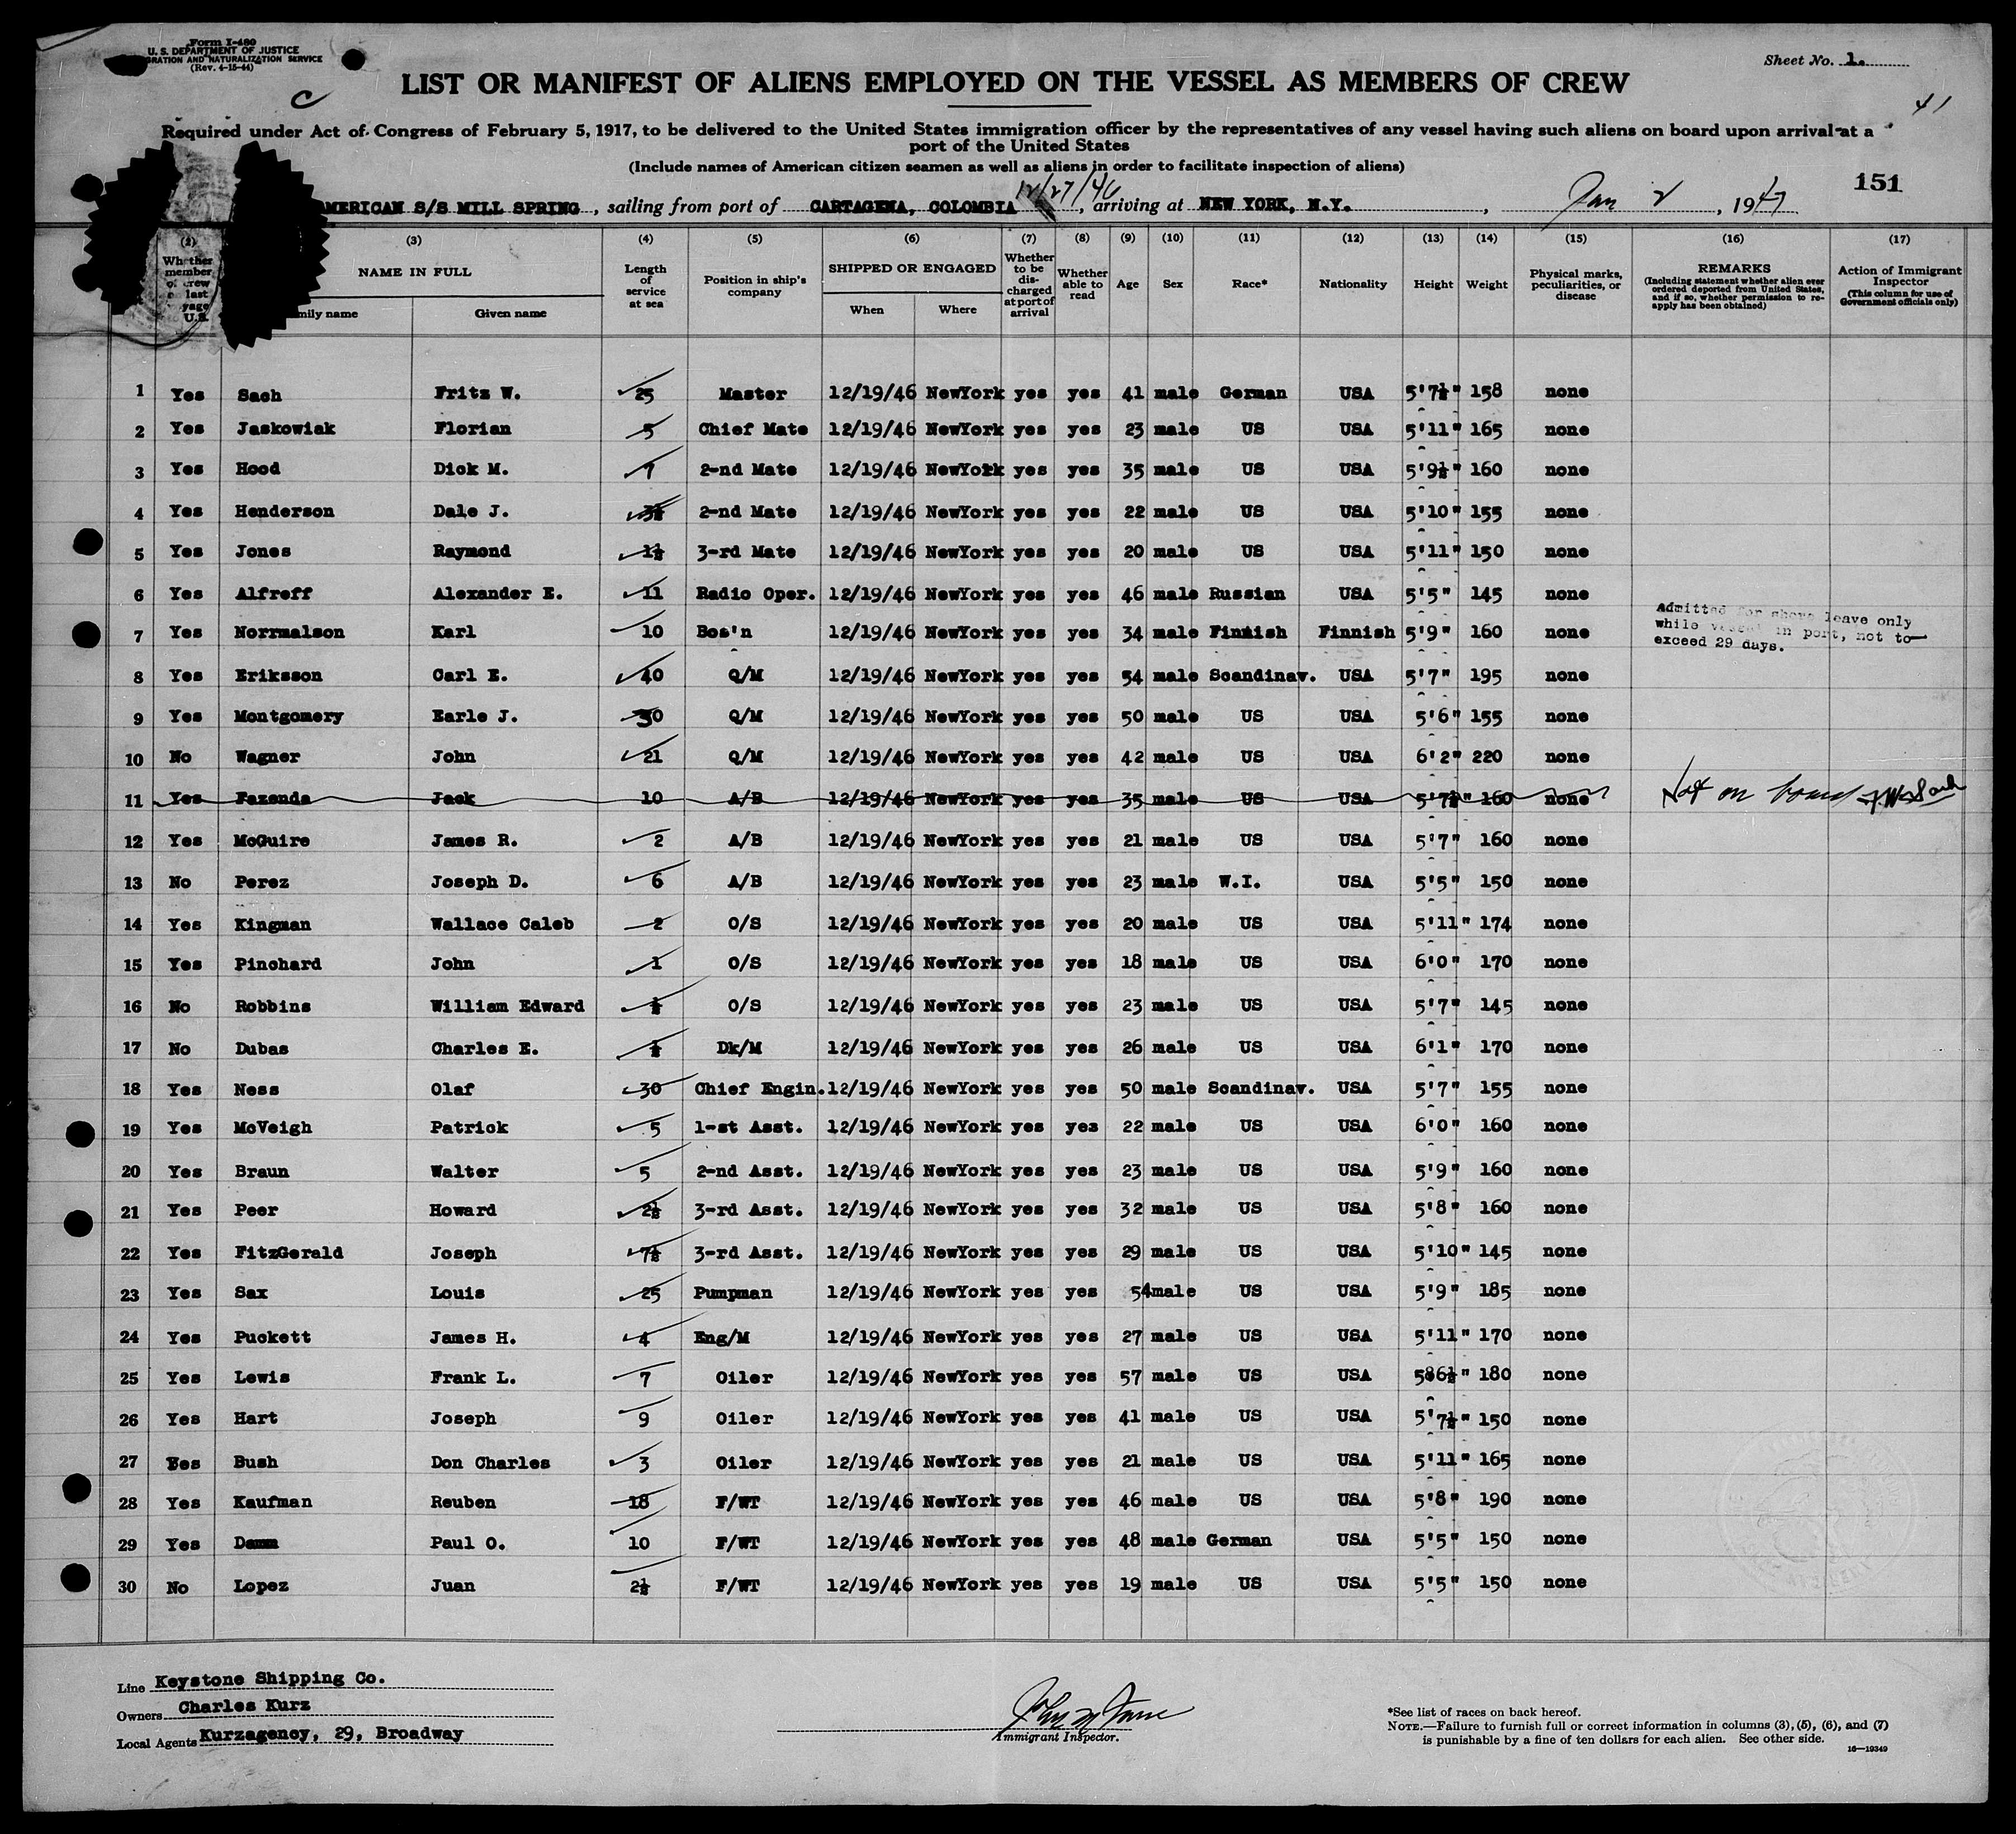 Form I-480
U. S. DEPARTMENT OF JUSTICE
GRATION AND NATURALIZATION SERVICE
(Rev. 4-15-44)
Sheet No. 1.
LIST OR MANIFEST OF ALIENS EMPLOYED ON THE VESSEL AS MEMBERS OF CREW
41
Required under Act of Congress of February 5, 1917, to be delivered to the United States immigration officer by the representatives of any vessel having such aliens on board upon arrival at a
port of the United States
(Include names of American citizen seamen as well as aliens in order to facilitate inspection of aliens)
151
MERICAN S/S MILL SPRING, sailing from port of CARTAGENA, COLOMBIA 12/27/46, arriving at NEW YORK, N.Y., Jan 2, 1947
(2) (3) (4) (5) (6) (7) (8) (9) (10) (11) (12) (13) (14) (15) (16) (17)
Whether member of crew last U.S. NAME IN FULL mily name Given name Length of service at sea Position in ship's company SHIPPED OR ENGAGED When Where Whether to be discharged at port of arrival Whether able to read Age Sex Race* Nationality Height Weight Physical marks, peculiarities, or disease REMARKS (Including statement whether alien ever ordered deported from United States, and if so, whether permission to reapply has been obtained) Action of Immigrant Inspector (This column for use of Government officials only)
1 Yes Sach Fritz W. 25 Master 12/19/46 NewYork yes yes 41 male German USA 5'7½" 158 none
2 Yes Jaskowiak Florian 5 Chief Mate 12/19/46 NewYork yes yes 23 male US USA 5'11" 165 none
3 Yes Hood Dick M. 7 2-nd Mate 12/19/46 NewYork yes yes 35 male US USA 5'9½" 160 none
4 Yes Henderson Dale J. 3½ 2-nd Mate 12/19/46 NewYork yes yes 22 male US USA 5'10" 155 none
5 Yes Jones Raymond 1½ 3-rd Mate 12/19/46 NewYork yes yes 20 male US USA 5'11" 150 none
6 Yes Alfreff Alexander E. 11 Radio Oper. 12/19/46 NewYork yes yes 46 male Russian USA 5'5" 145 none
7 Yes Norrmalson Karl 10 Bos'n 12/19/46 NewYork yes yes 34 male Finnish Finnish 5'9" 160 none Admitted for shore leave only while vessel in port, not to exceed 29 days.
8 Yes Eriksson Carl E. 40 Q/M 12/19/46 NewYork yes yes 54 male Scandinav. USA 5'7" 195 none
9 Yes Montgomery Earle J. 30 Q/M 12/19/46 NewYork yes yes 50 male US USA 5'6" 155 none
10 No Wagner John 21 Q/M 12/19/46 NewYork yes yes 42 male US USA 6'2" 220 none
11 Yes Fazenda Jack 10 A/B 12/19/46 NewYork yes yes 35 male US USA 5'7½" 160 none Not on board F.W. Sach
12 Yes McGuire James R. 2 A/B 12/19/46 NewYork yes yes 21 male US USA 5'7" 160 none
13 No Perez Joseph D. 6 A/B 12/19/46 NewYork yes yes 23 male W.I. USA 5'5" 150 none
14 Yes Kingman Wallace Caleb 2 O/S 12/19/46 NewYork yes yes 20 male US USA 5'11" 174 none
15 Yes Pinchard John 1 O/S 12/19/46 NewYork yes yes 18 male US USA 6'0" 170 none
16 No Robbins William Edward ½ O/S 12/19/46 NewYork yes yes 23 male US USA 5'7" 145 none
17 No Dubas Charles E. ½ Dk/M 12/19/46 NewYork yes yes 26 male US USA 6'1" 170 none
18 Yes Ness Olaf 30 Chief Engin. 12/19/46 NewYork yes yes 50 male Scandinav. USA 5'7" 155 none
19 Yes McVeigh Patrick 5 1-st Asst. 12/19/46 NewYork yes yes 22 male US USA 6'0" 160 none
20 Yes Braun Walter 5 2-nd Asst. 12/19/46 NewYork yes yes 23 male US USA 5'9" 160 none
21 Yes Peer Howard 2½ 3-rd Asst. 12/19/46 NewYork yes yes 32 male US USA 5'8" 160 none
22 Yes FitzGerald Joseph 7½ 3-rd Asst. 12/19/46 NewYork yes yes 29 male US USA 5'10" 145 none
23 Yes Sax Louis 25 Pumpman 12/19/46 NewYork yes yes 54 male US USA 5'9" 185 none
24 Yes Puckett James H. 4 Eng/M 12/19/46 NewYork yes yes 27 male US USA 5'11" 170 none
25 Yes Lewis Frank L. 7 Oiler 12/19/46 NewYork yes yes 57 male US USA 5'6½" 180 none
26 Yes Hart Joseph 9 Oiler 12/19/46 NewYork yes yes 41 male US USA 5'7½" 150 none
27 Yes Bush Don Charles 3 Oiler 12/19/46 NewYork yes yes 21 male US USA 5'11" 165 none
28 Yes Kaufman Reuben 18 F/WT 12/19/46 NewYork yes yes 46 male US USA 5'8" 190 none
29 Yes Damm Paul O. 10 F/WT 12/19/46 NewYork yes yes 48 male German USA 5'5" 150 none
30 No Lopez Juan 2½ F/WT 12/19/46 NewYork yes yes 19 male US USA 5'5" 150 none
Line Keystone Shipping Co.
Owners Charles Kurz
Local Agents Kurzagency, 29, Broadway
Immigrant Inspector.
*See list of races on back hereof.
NOTE.—Failure to furnish full or correct information in columns (3), (5), (6), and (7)
is punishable by a fine of ten dollars for each alien. See other side.
16—19349